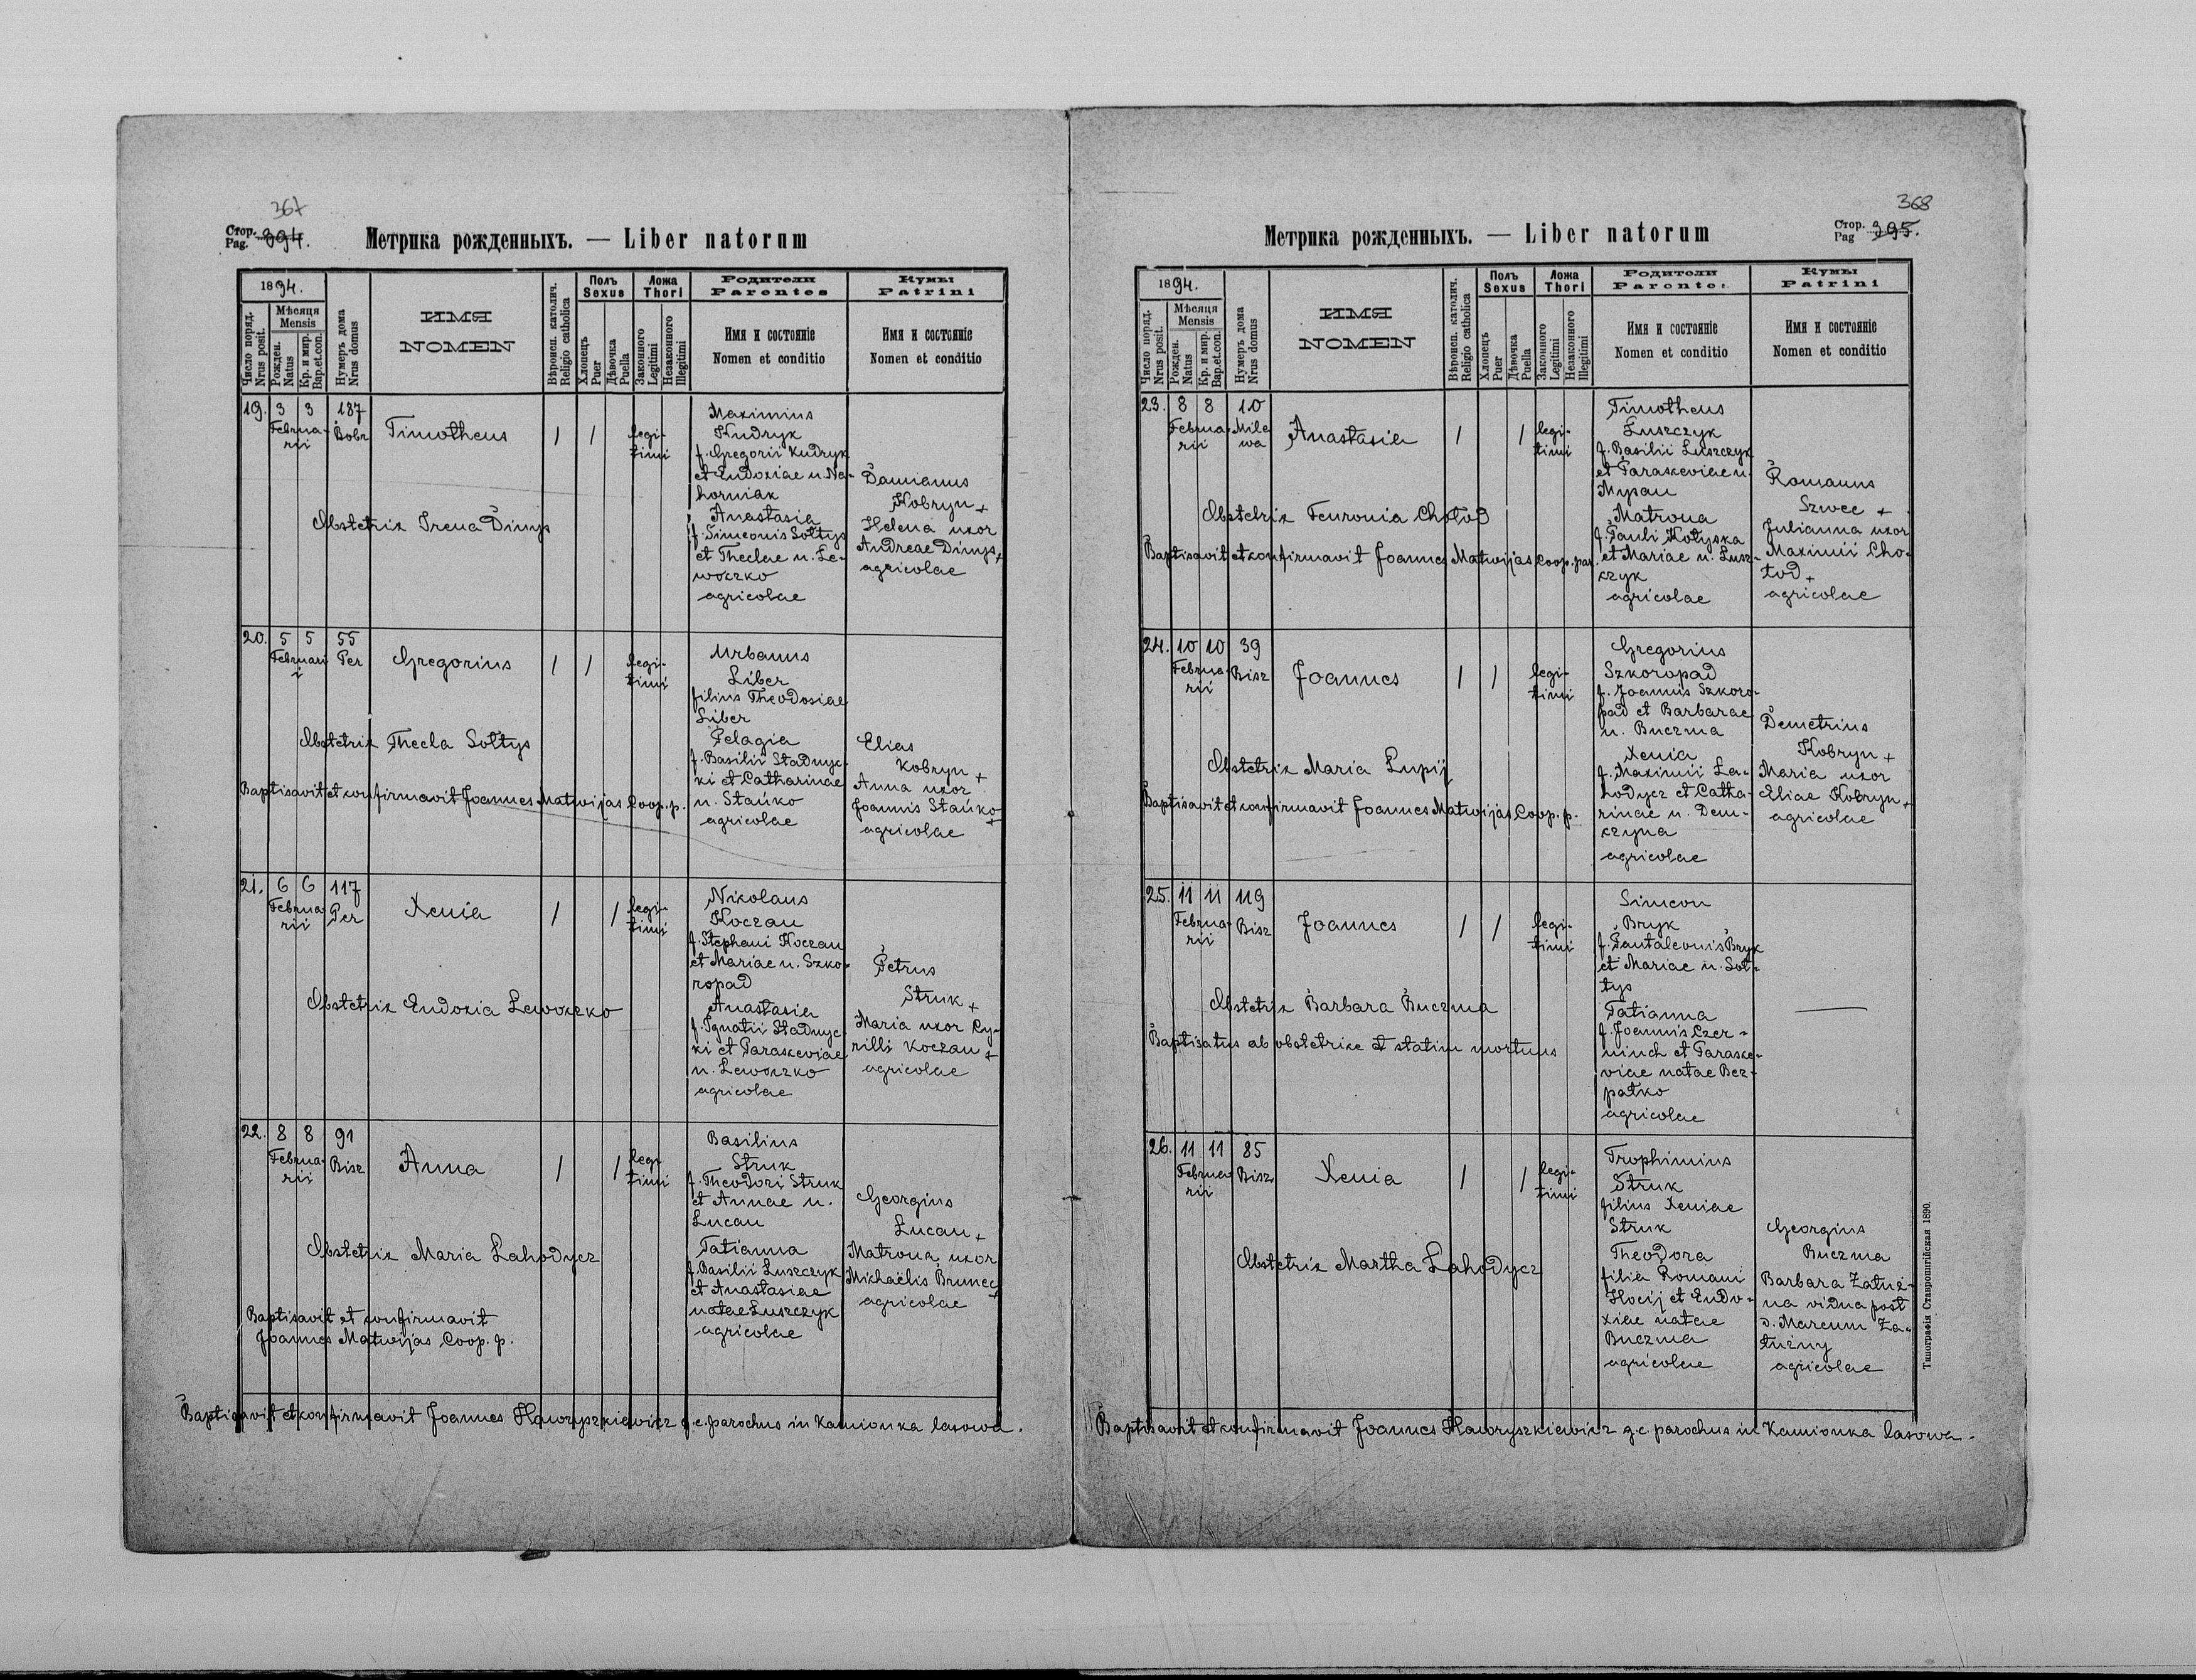 367
Стор.
Pag. 394.
Метрика рожденныхъ. — Liber natorum
1894.
Число поряд.
Nrus posit.
Мѣсяця
Mensis
Рожден.
Natus
Кр. и мир.
Bap.et.con.
Нумеръ дома
Nrus domus
ИМЯ
NOMEN
Вѣроисп. католич.
Religio catholica
Полъ
Sexus
Хлопецъ
Puer
Дѣвочка
Puella
Ложа
Thori
Законного
Legitimi
Незаконного
Illegitimi
Родители
Parentes
Имя и состояніе
Nomen et conditio
Кумы
Patrini
Имя и состояніе
Nomen et conditio
19. 3 3 187
Februa-
rii
Bobr
Timotheus
/ /
legi-
timi
Maximius
Kudryk
f. Gregorii Kudryk
et Eudoxiae n. Na-
horniak
Anastasia
f. Simeonis Sołtys
et Theclae n. Le-
woczko
agricolae
Damianus
Kobryn +
Helena uxor
Andreae Dinys +
agricolae
Obstetrix Irena Dinys
20. 5 5 55
Februari
i
Per
Gregorius
/ /
legi-
timi
Urbanus
Liber
filius Theodosiae
Liber
Pelagia
f. Basilii Stadnyc-
ki et Catharinae
n. Stańko
agricolae
Elias
Kobryn +
Anna uxor
Joannis Stańko +
agricolae
Obstetrix Thecla Sołtys
Baptisavit et confirmavit Joannes Matwijas Coop. p.
21. 6 6 117
Februa-
rii
Per
Xenia
/ /
legi-
timi
Nikolaus
Koczan
f. Stephani Koczan
et Mariae n. Szko-
ropad
Anastasia
f. Ignatii Stadnyc-
ki et Paraskeviae
n. Lewoczko
agricolae
Petrus
Struk +
Maria uxor Cy-
rilli Koczan +
agricolae
Obstetrix Eudoxia Lewoczko
22. 8 8 91
Februa-
rii
Bisz
Anna
/ /
legi
timi
Basilius
Struk
f. Theodori Struk
et Annae n.
Lucan
Tatianna
f. Basilii Łuszczyk
et Anastasiae
natae Łuszczyk
agricolae
Georgius
Lucan +
Matrona uxor
Mikhaëlis Brunec +
agricolae
Obstetrix Maria Lahodycz
Baptisavit et confirmavit
Joannes Matwijas Coop. p.
Baptisavit et confirmavit Joannes Hawryszkiewicz g.c. parochus in Kamionka lasowa.
368
Стор.
Pag 395.
Метрика рожденныхъ. — Liber natorum
1894.
Число поряд.
Nrus posit.
Мѣсяця
Mensis
Рожден.
Natus
Кр. и мир.
Bap.et.con.
Нумеръ дома
Nrus domus
ИМЯ
NOMEN
Вѣроисп. католич.
Religio catholica
Полъ
Sexus
Хлопецъ
Puer
Дѣвочка
Puella
Ложа
Thori
Законного
Legitimi
Незаконного
Illegitimi
Родители
Parentes
Имя и состояніе
Nomen et conditio
Кумы
Patrini
Имя и состояніе
Nomen et conditio
23. 8 8 10
Februa-
rii
Mile
wa
Anastasia
/ /
legi-
timi
Timotheus
Łuszczyk
f. Basilii Łuszczyk
et Paraskeviae n.
Mypau
Matrona
f. Pauli Kotyska
et Mariae n. Łusz-
czyk
agricolae
Romanus
Szwec +
Julianna uxor
Maximii Cho-
łod +
agricolae
Obstetrix Feuronia Chołod
Baptisavit et confirmavit Joannes Matwijas Coop. par.
24. 10 10 39
Februa-
rii
Bisz
Joannes
/ /
legi-
timi
Gregorius
Szkoropad
f. Joannis Szkoro-
pad et Barbarae
n. Buczma
Xenia
f. Maximii La-
hodycz et Catha-
rinae n. Dem-
czyna
agricolae
Demetrius
Kobryn +
Maria uxor
Eliae Kobryn +
agricolae
Obstetrix Maria Lupij
Baptisavit et confirmavit Joannes Matwijas Coop. p.
25. 11 11 119
Februa-
rii
Bisz
Joannes
/ /
legi-
timi
Simeon
Bryk
f. Pantaleonis Bryk
et Mariae n. Soł-
tys
Tatianna
f. Joannis Czer-
ninch et Paraske-
viae natae Bez-
pałko
agricolae
—
Obstetrix Barbara Buczma
Baptisatus ab obstetrice et statim mortuus
26. 11 11 85
Februa
rii
Bisz
Xenia
/ /
legi-
timi
Trophimius
Struk
filius Xeniae
Struk
Theodora
filia Romani
Hocij et Eudo-
xiae natae
Buczma
agricolae
Georgius
Buczma
Barbara Zatuź-
na vidua post
d. Marcum Za-
tuźny
agricolae
Obstetrix Martha Lahodycz
Baptisavit et confirmavit Joannes Hawryszkiewicz g.c. parochus in Kamionka lasowa.
Типографія Ставропигійская 1890.